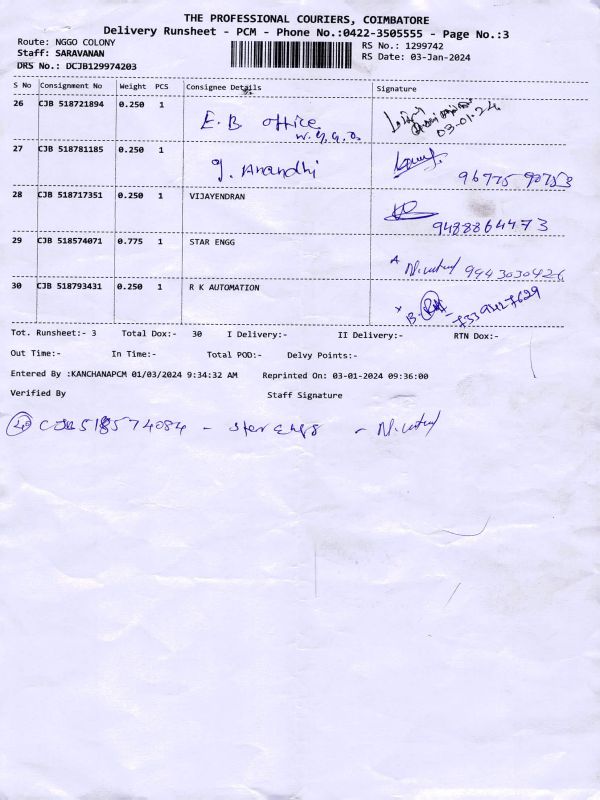 THE PROFESSIONAL COURIERS, COIMBATORE
Delivery Runsheet - PCM - Phone No.:0422-3505555 - Page No.:3
Route: NGGO COLONY
RS No.: 1299742
Staff: SARAVANAN
RS Date: 03-Jan-2024
DRS No.: DCJB129974203
S No Consignment No Weight PCS Consignee Details Signature
26 CJB 518721894 0.250 1 E.B office
03-01-24
27 CJB 518781185 0.250 1 Y. Anandhi
96775 90753
28 CJB 518717351 0.250 1 VIJAYENDRAN
9488864473
29 CJB 518574071 0.775 1 STAR ENGG
9943030426
30 CJB 518793431 0.250 1 R K AUTOMATION
Tot. Runsheet:- 3 Total Dox:- 30 I Delivery:- II Delivery:- RTN Dox:-
Out Time:- In Time:- Total POD:- Delvy Points:-
Entered By :KANCHANAPCM 01/03/2024 9:34:32 AM Reprinted On: 03-01-2024 09:36:00
Verified By Staff Signature
518574084 - Star Engg -